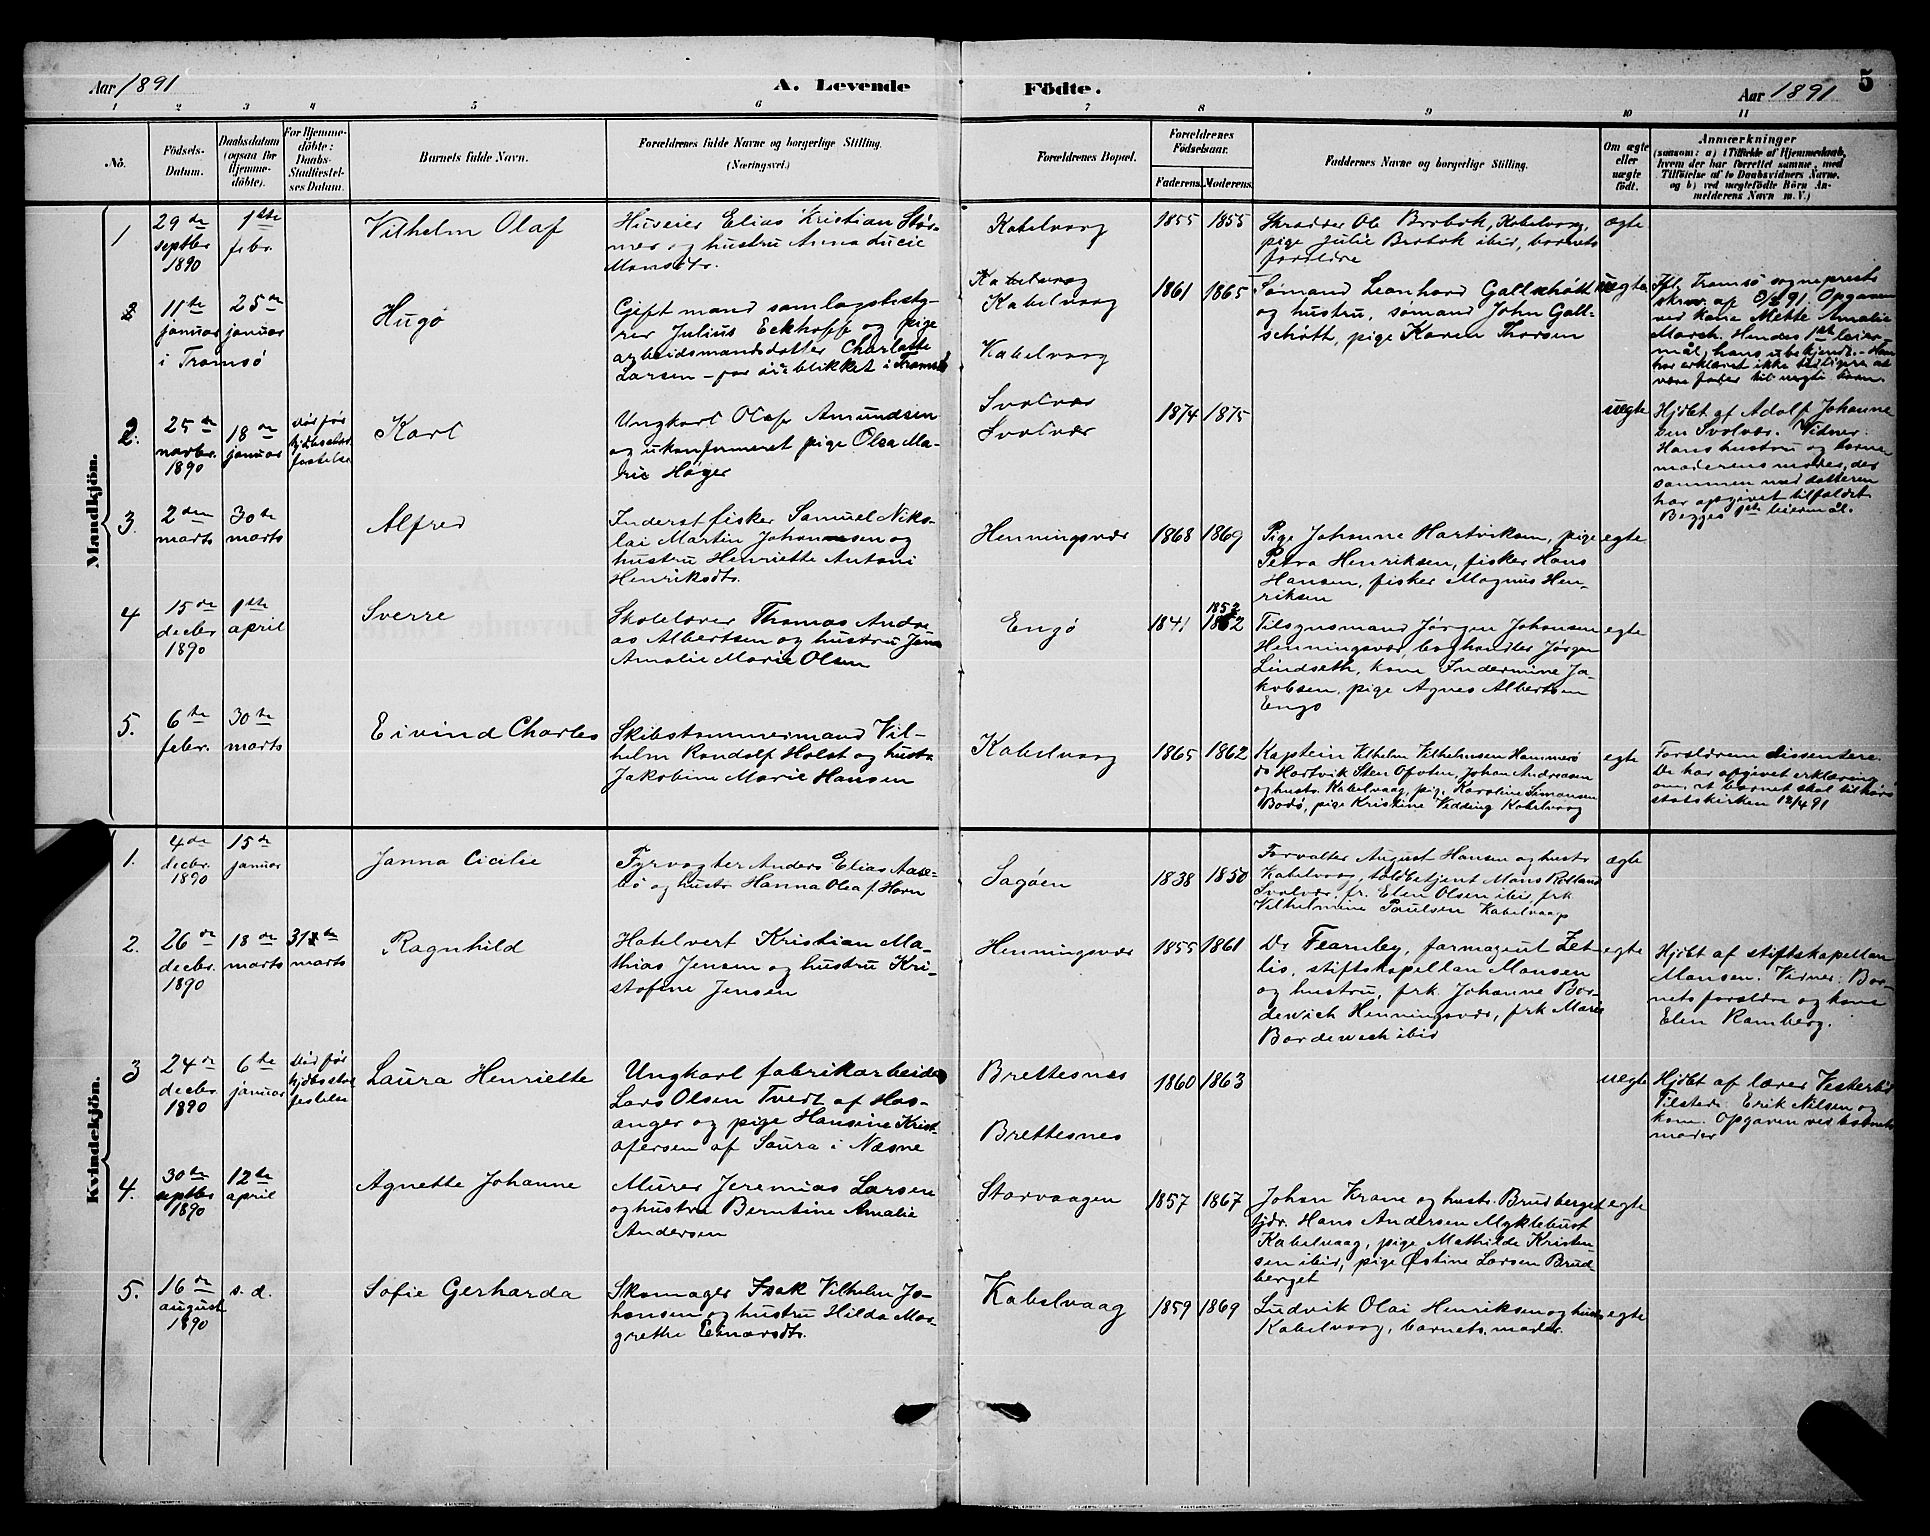 Aar 1891
A. Levende
Födte.
Aar 1891
5
1 2 3 4 5 6 7 8 9 10 11
No.
Födsels-
Datum.
Daabsdatum
(ogsaa for
Hjemme-
döbte).
For Hjemme-
döbte:
Daabs-
Stadfæstel-
ses Datum.
Barnets fulde Navn.
Forældrenes fulde Navne og borgerlige Stilling.
(Næringsvei.)
Forældrenes Bopæl.
Forældrenes
Födselsaar.
Faderens. Moderens.
Faddernes Navne og borgerlige Stilling.
Om ægte
eller
uægte
født.
Anmærkninger
(saasom: a) i Tilfælde af Hjemmedaab,
hvem der har forrettet samme, med
Tilföielse af to Daabsvidners Navne,
og b) ved uægtefödte Börn An-
melderens Navn m. V.)
Mandkjön.
1
29de
septbr
1890
1ste
febr.
Vilhelm Olaf
Huseier Elias Kristian Stør-
mer og hustru Anna Lucie
Monsdtr.
Kabelvaag
1855
1855
Skrædder Ole Brobok, Kabelvaag,
pige Julie Brobok ibid, barnets
forældre
ægte
2
11te
januar
i Tromsø
25de
januar
Hugo
Gift mand samlagsbesty-
rer Julius Eckhoff og pige
arbeidsmandsdatter Charlotte
Larsen – for øieblikket i Tromsø
Kabelvaag
Kabelvaag
Kabelvaag
1861
1865
Sømand Leonhard Gallschøtt
og hustru, sømand John Gall-
schøtt, pige Karen Thorsen
uegte
Ifl. Tromsø sogneprests
skriv. af 2/2 91. Opgaven
ved kone Mette Amalie
March. Hendes 1ste leier-
mål, hans ubekjendt. – Han
har erklæret ikke tidligere at
være fader til uegte barn.
2.
25de
novbr.
1890
18de
januar
Død før
hjdbs stad-
festelse
Karl
Ungkarl Olaf Amundsen
og ukonfirmeret pige Olea Ma-
rie Høger
Svolvær
Svolvær
1874
1875
uegte
Hjdbt af Adolf Johanne-
sen Svolvær. Vidner:
Hans hustru og barne-
moderens moder, der
sammen med datteren
har opgivet tilfældet.
Begges 1ste leiermål.
3.
2den
marts
30te
marts
Alfred
Inderst fisker Samuel Niko-
lai Martin Johannesen og
hustru Henriette Antoni
Henriksdtr.
Henningsvær
1868
1869
Pige Johanne Hartviksen, pige
Petra Henriksen, fisker Hans
Hansen, fisker Magnus Hen-
riksen
egte
4
15de
decbr
1890
1ste
april
Sverre
Skolelærer Thomas Andre-
as Albertsen og hustru Jens
Amalie Marie Olsen
Engø
1841
1852
1852
Tilsynsmand Jørgen Johansen
Henningsvær, boghandler Jørgen
Lindseth, kone Indermine Ja-
kobsen, pige Agnes Albertsen
Engø
egte
5.
6te
febr.
30te
marts
Eivind Charles
Skibstømmermand Vil-
helm Randolf Holst og hustr.
Jakobine Marie Hansen
Kabelvaag
1865
1862
Kaptein Vilhelm Vilhelmsen Hammerø
do Hartvik Sten Ofoten, Johan Andreasen
og hustr. Kabelvaag, pig. Karoline Simonsen
Bodø, pige Kristine Vedding Kabelvaag
egte
Forældrene dissentere.
De har opgivet erklæring
om, at barnet skal tilhøre
statskirken 12/4 91
Kvindekjön.
1.
4de
decbr.
1890
15de
januar
Janna Cicilie
Fyrvogter Anders Elias Aase-
bø og hustr Hanna Olea f. Horn
Sagøen
1838
1850
Forvalter August Hansen og hustr
Kabelvaag, toldbetjent Mons Rolland
Svolvær, fr. Elen Olsen ibid, frk
Vilhelmine Paulsen Kabelvaag
ægte
2.
26de
decbr.
1890
18de
marts
31te
marts
Ragnhild
Hotelvert Kristian Ma-
thias Jensen og hustru Kri-
stofine Jensen
Henningsvær
1855
1861
Dr Fearnley, farmaceut Zet-
lis, stiftskapellan Monsen
og hustru, frk. Johanne Bor-
dewich Henningsvær, frk Marie
Bordewich ibid
egte
Hjdbt af stiftskapellan
Monsen. Vidner: Bar-
nets forældre og kone
Elen Ramberg.
3
24de
decbr
1890
6te
januar
Død før
hjdbs stad-
festelse
Laura Henriette
Ungkarl fabrikarbeider
Lars Olsen Tvedt af Has-
anger og pige Hansine Krist-
ofersen af Saura i Nesne
Brettesnes
Brettesnes
1860
1863
uegte
Hjdbt af lærer Vesterbø
Tilsted: Erik Nilsen og
kone. Opgaven ved barnets
moder
4.
30te
septbr
1890
12te
april
Agnette Johanne
Murer Jeremias Larsen
og hustru Berntine Amalie
Andersen
Storvaagen
1857
1867
Johan Krane og hustr. Brudberget
fjdr. Hans Andersen Myklebust
Kabelvaag, pige Mathilde Kristen-
sen ibid, pige Østine Larsen Brud-
berget
egte
5.
16de
august
1890
s. d.
Sofie Gerharda
Skomager Isak Vilhelm Jo-
hansen og hustru Hilda Mar-
grethe Einarsdtr.
Kabelvaag
1859
1869
Ludvik Olai Henriksen og hustr
Kabelvaag, barnets moder.
egte